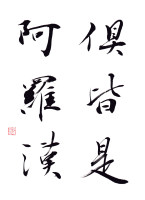 俱皆是
阿羅漢